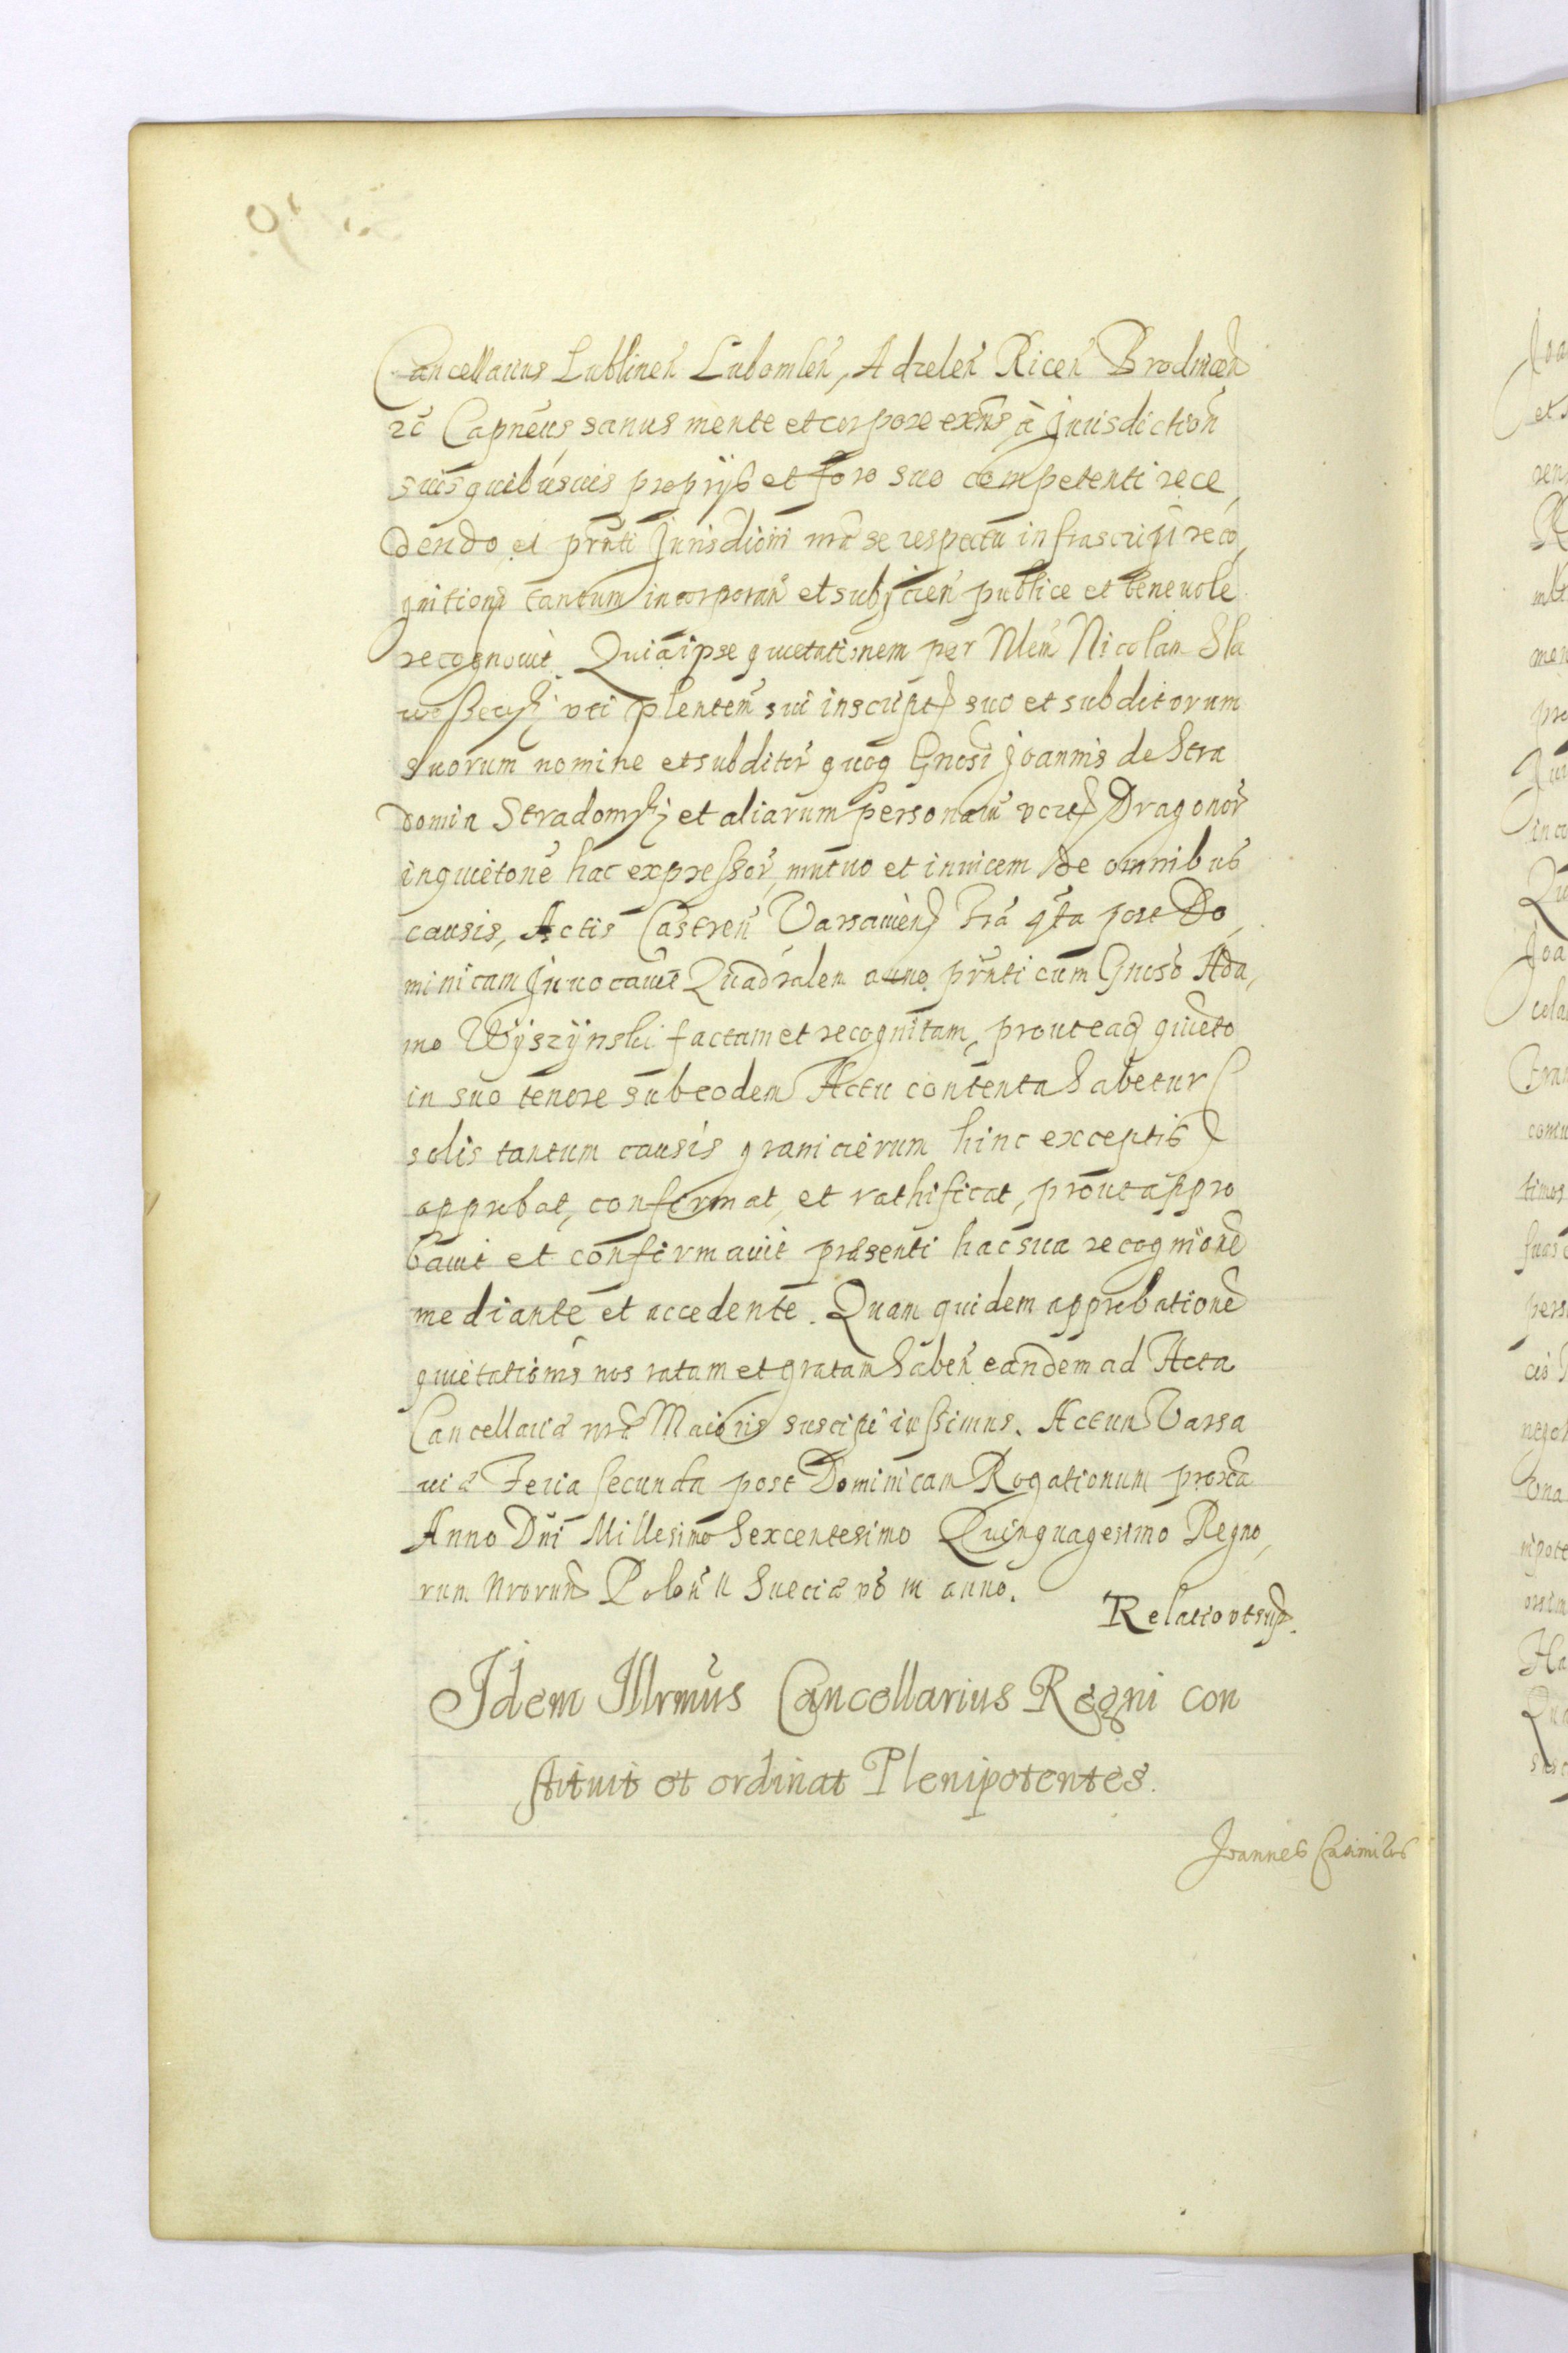 Cancellarius Lublineñ Lubomleñ, Adzeleñ Riceñ Brodniceñ
zc̃ Capneũs sanus mente et corpore exñs à Jurisdiction
suis quibusuis proprijs et foro suo competenti rece,
dendo, et prñti Jurisdioni nrã se respectu infrascripti reco,
gnitionis tantum incorporañ et subjcieñ publice et beneuole
recognouit. Quia ipse quietationem per Nlem Nicolaum Sla
woszewsky uti plentem sui inscript suo et subditorum
suorum nomine et subditor̃ quoq Gnosi Joannis de Stra
domin Stradomsky et aliarum personaru Dragonor̃
in quietone hac expressor̃, mutuo et inuicem de omnibus
causis, Actis Castreñ Varsauien fr̃a qta post Do,
minicam Inuocauit Quadralem anno prñti cum Gnoso Ada,
mo Wyszynski factam et recognitam, prout eaq quieto
in suo tenore sub eodem Actu contenta habetur
solis tantum causis granicierum hinc exceptis
approbat, confirmat, et rathificat, prout appro
bauit et confirmauit præsenti hac sua recognione
mediante et accedente. Quam quidem approbatione
quietationis nos ratam et gratam habeñ eandem ad Acta
Cancellariæ nræ Maioris suscipi iussimus. Actum Varsa
uiæ Feria secunda post Dominicam Rogationum proxa
Anno Dñi Millesimo Sexcentesimo Quinquagesimo Regno,
rum Nrorum Poloñ II Sueciæ vo III anno.
Relatio ut sup.
Idem Illrmus Cancellarius Regni con
stituit et ordinat Plenipotentes.
Joannes Casimirus